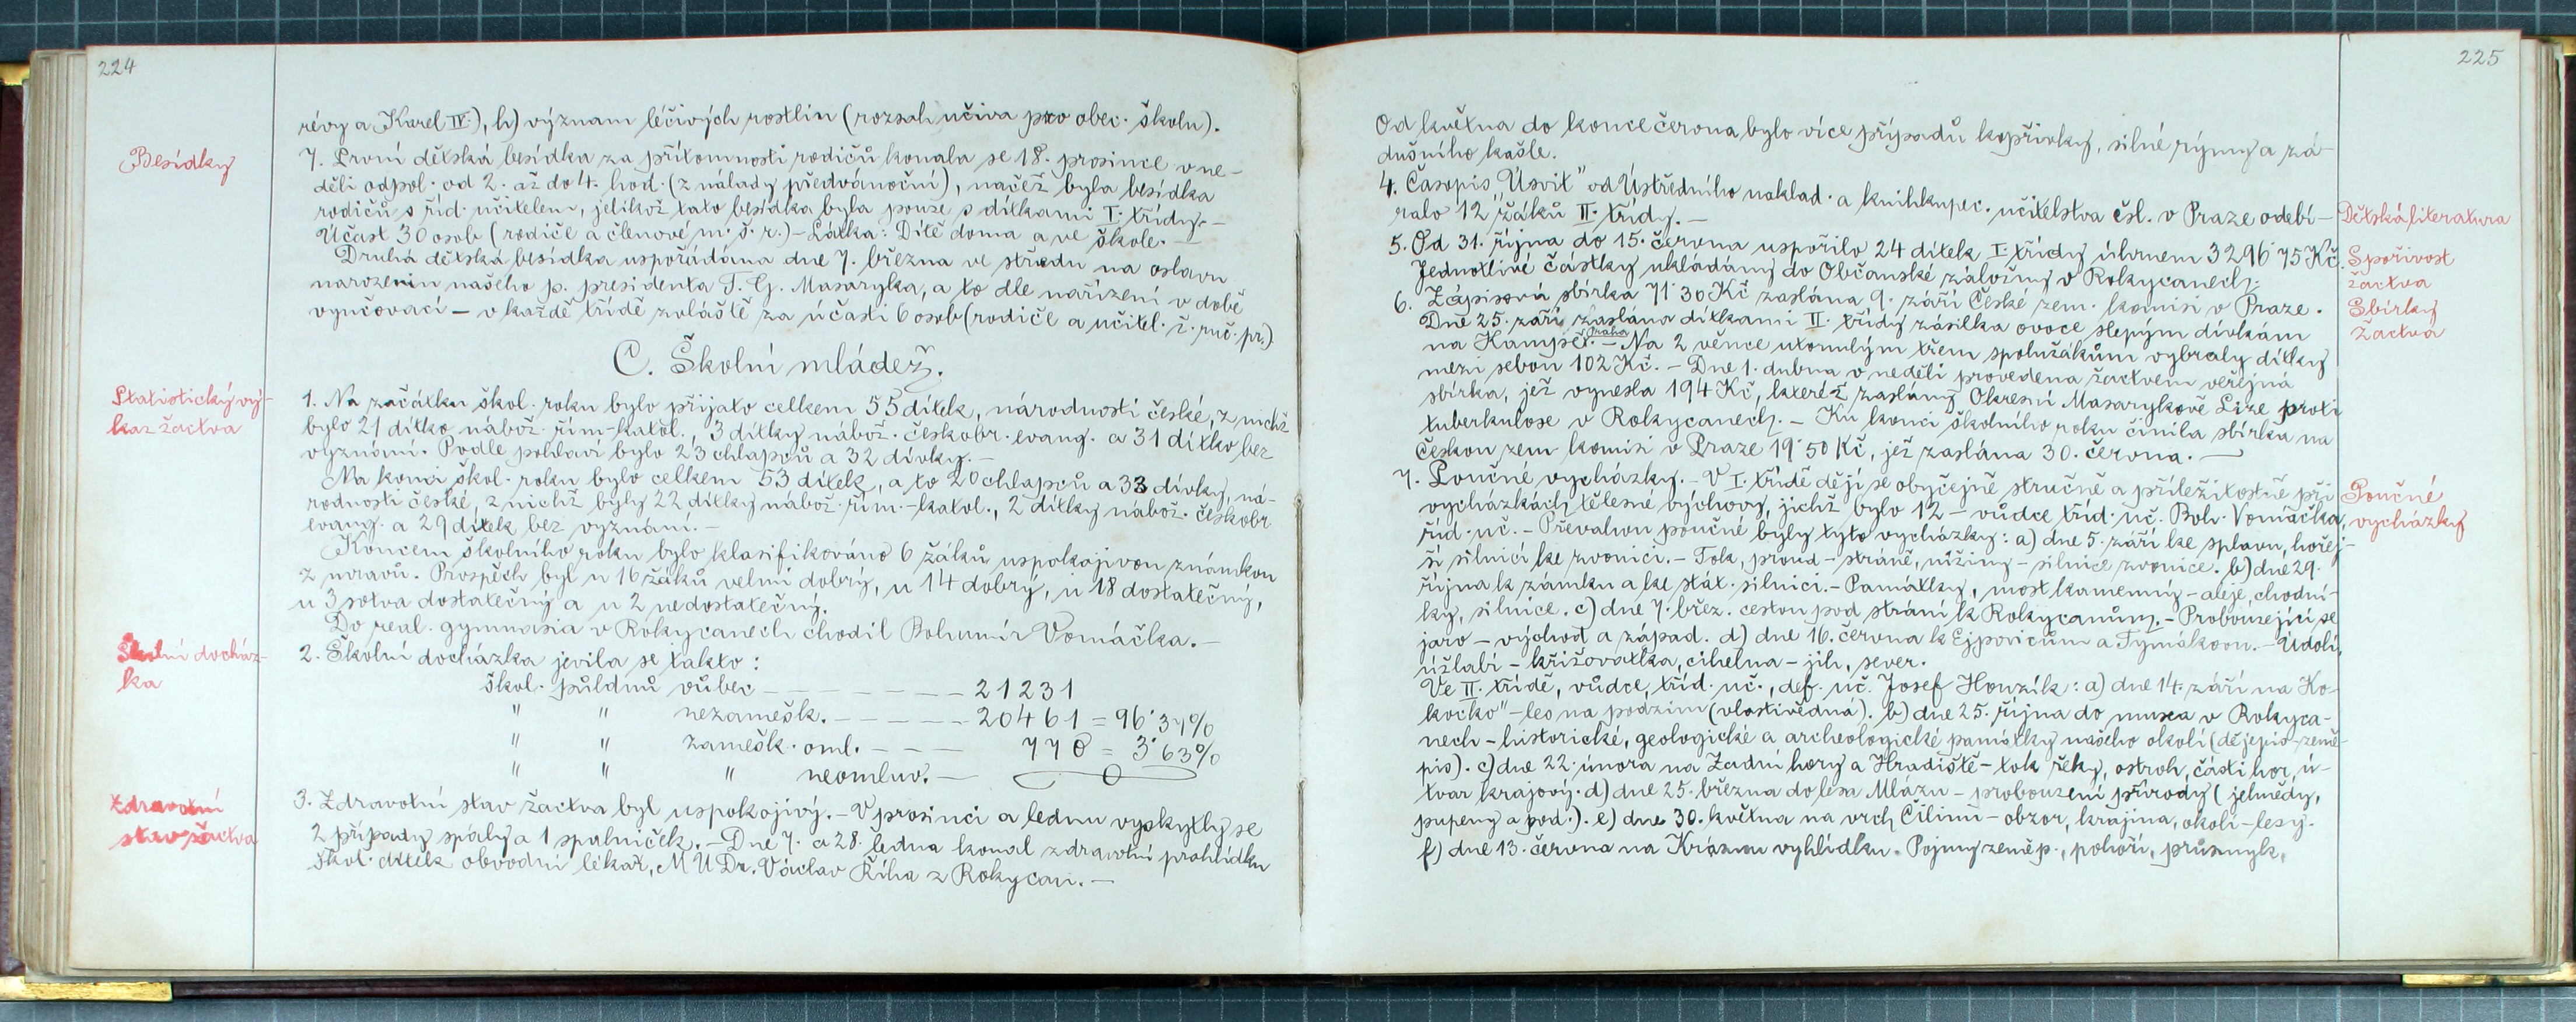 224
révy a Karel IV.), h) význam léčivých rostlin (rozsah učiva pro obec. školu).
Besídky
7. První dětská besídka za přítomnosti rodičů konala se 18. prosince v ne-
děli odpol. od 2. až do 4. hod. (z nálady předvánoční), načež byla besídka
rodičů s říd. učitelem, jelikož tato besídka byla pouze s dítkami I. třídy. -
Účast 30 osob (rodiče a členové m. š. r.) - Látka: Dítě doma a ve škole.
Druhá dětská besídka uspořádána dne 7. března ve středu na oslavu
narozenin našeho p. presidenta T. G. Masaryka, a to dle nařízení v době
vyučovací - v každé třídě zvláště za účasti 6 osob (rodiče a učitel. ž. ruč. pr.)
C. Školní mládež.
Statistický vý-
kaz žactva
1. Na začátku škol. roku bylo přijato celkem 55 dítek, národnosti české, z nichž
bylo 21 dítko nábož. řím-katol., 3 dítky nábož. českobr. evang. a 31 dítko bez
vyznání. Podle pohlaví bylo 23 chlapců a 32 dívky. -
Na konci škol. roku bylo celkem 53 dítek, a to 20 chlapců a 33 dívky, ná-
rodnosti české, z nichž byly 22 dítky nábož. řím.-katol., 2 dítky nábož. českobr.
evang. a 29 dítek bez vyznání. -
Koncem školního roku bylo klasifikováno 6 žáků uspokojivou známkou
z mravů. Prospěch byl u 16 žáků velmi dobrý, u 14 dobrý, u 18 dostatečný,
u 3 sotva dostatečný a u 2 nedostatečný.
Do real. gymnasia v Rokycanech chodil Bohumír Vomáčka. -
Školní docház-
ka
2. Školní docházka jevila se takto:
škol. půldnů vůbec - - - - - - - 21231
" " nezamešk. - - - - - 20461 = 96·37%
" " zamešk. oml. - - - 770 = 3·63%
" " " neomluv. - 0
Zdravotní
stav žactva
3. Zdravotní stav žactva byl uspokojivý. - V prosinci a lednu vyskytly se
2 případy spály a 1 spalniček. - Dne 7. a 28. ledna konal zdravotní prohlídku
škol. dítek obvodní lékař, MUDr. Václav Říha z Rokycan. -
225
Od května do konce června bylo více případů kopřivky, silné rýmy a zá-
dušního kašle.
4. Časopis „Úsvit" od Ústředního naklad. a knihkupec. učitelstva čsl. v Praze odebí-
ralo 12 žáků II. třídy. -
Dětská literatura
5. Od 31. října do 15. června uspořilo 24 dítek I. třídy úhrnem 3296·75 Kč.
Jednotlivé částky ukládány do Občanské záložny v Rokycanech.
Spořivost
žactva
6. Zápisová sbírka 71·30 Kč zaslána 9. září České zem. komisi v Praze.
Dne 25. září zaslána dítkami II. třídy zásilka ovoce slepým dívkám
Sbírky
žactva
na Kampě. Praha - Na 2 věnce utonulým třem spolužákům vybraly dítky
mezi sebou 102 Kč. - Dne 1. dubna v neděli provedena žactvem veřejná
sbírka, jež vynesla 194 Kč, kteréž zaslány Okresní Masarykově Lize proti
tuberkulose v Rokycanech. - Ku konci školního roku činila sbírka na
Českou zem komisi v Praze 19·50 Kč, jež zaslána 30. června. -
7. Poučné vycházky. - V I. třídě dějí se obyčejně stručně a příležitostně při
Poučné
vycházky
vycházkách tělesné výchovy, jichž bylo 12 - vůdce tříd. uč. Boh. Vomáčka,
říd. uč. - Převahou poučné byly tyto vycházky: a) dne 5. září ke splavu, hořej-
ší silnicí ke zvonici. - Tok, proud - stráně, nížiny - silnice zvonice. b) dne 29.
října k zámku a ke stát. silnici. - Památky, most kamenný - aleje, chodní-
ky, silnice. c) dne 7. břez. cestou pod strání k Rokycanům. - Probouzející se
jaro - východ a západ. d) dne 16. června k Ejpovicům a Tymákovu. - Údolí,
úžlabí - křižovatka, cihelna - jih, sever.
Ve II. třídě, vůdce, tříd. uč., def. uč. Josef Houzík: a) dne 14. září na Ko-
kocko" - les na podzim (vlastivědná). b) dne 25. října do musea v Rokyca-
nech - historické, geologické a archeologické památky našeho okolí (dějepis-země-
pis). c) dne 22. února na Zadní hory a Hradiště - tok řeky, ostroh, části hor, ú-
tvar krajový. d) dne 25. března do lesa Mlázu - probouzení přírody (jehnědy,
pupeny a pod.). e) dne 30. května na vrch Čilinu - obzor, krajina, okolí - lesy.
f) dne 13. června na Krásnou vyhlídku. Pojmy zeměp., pohoří, průsmyk,